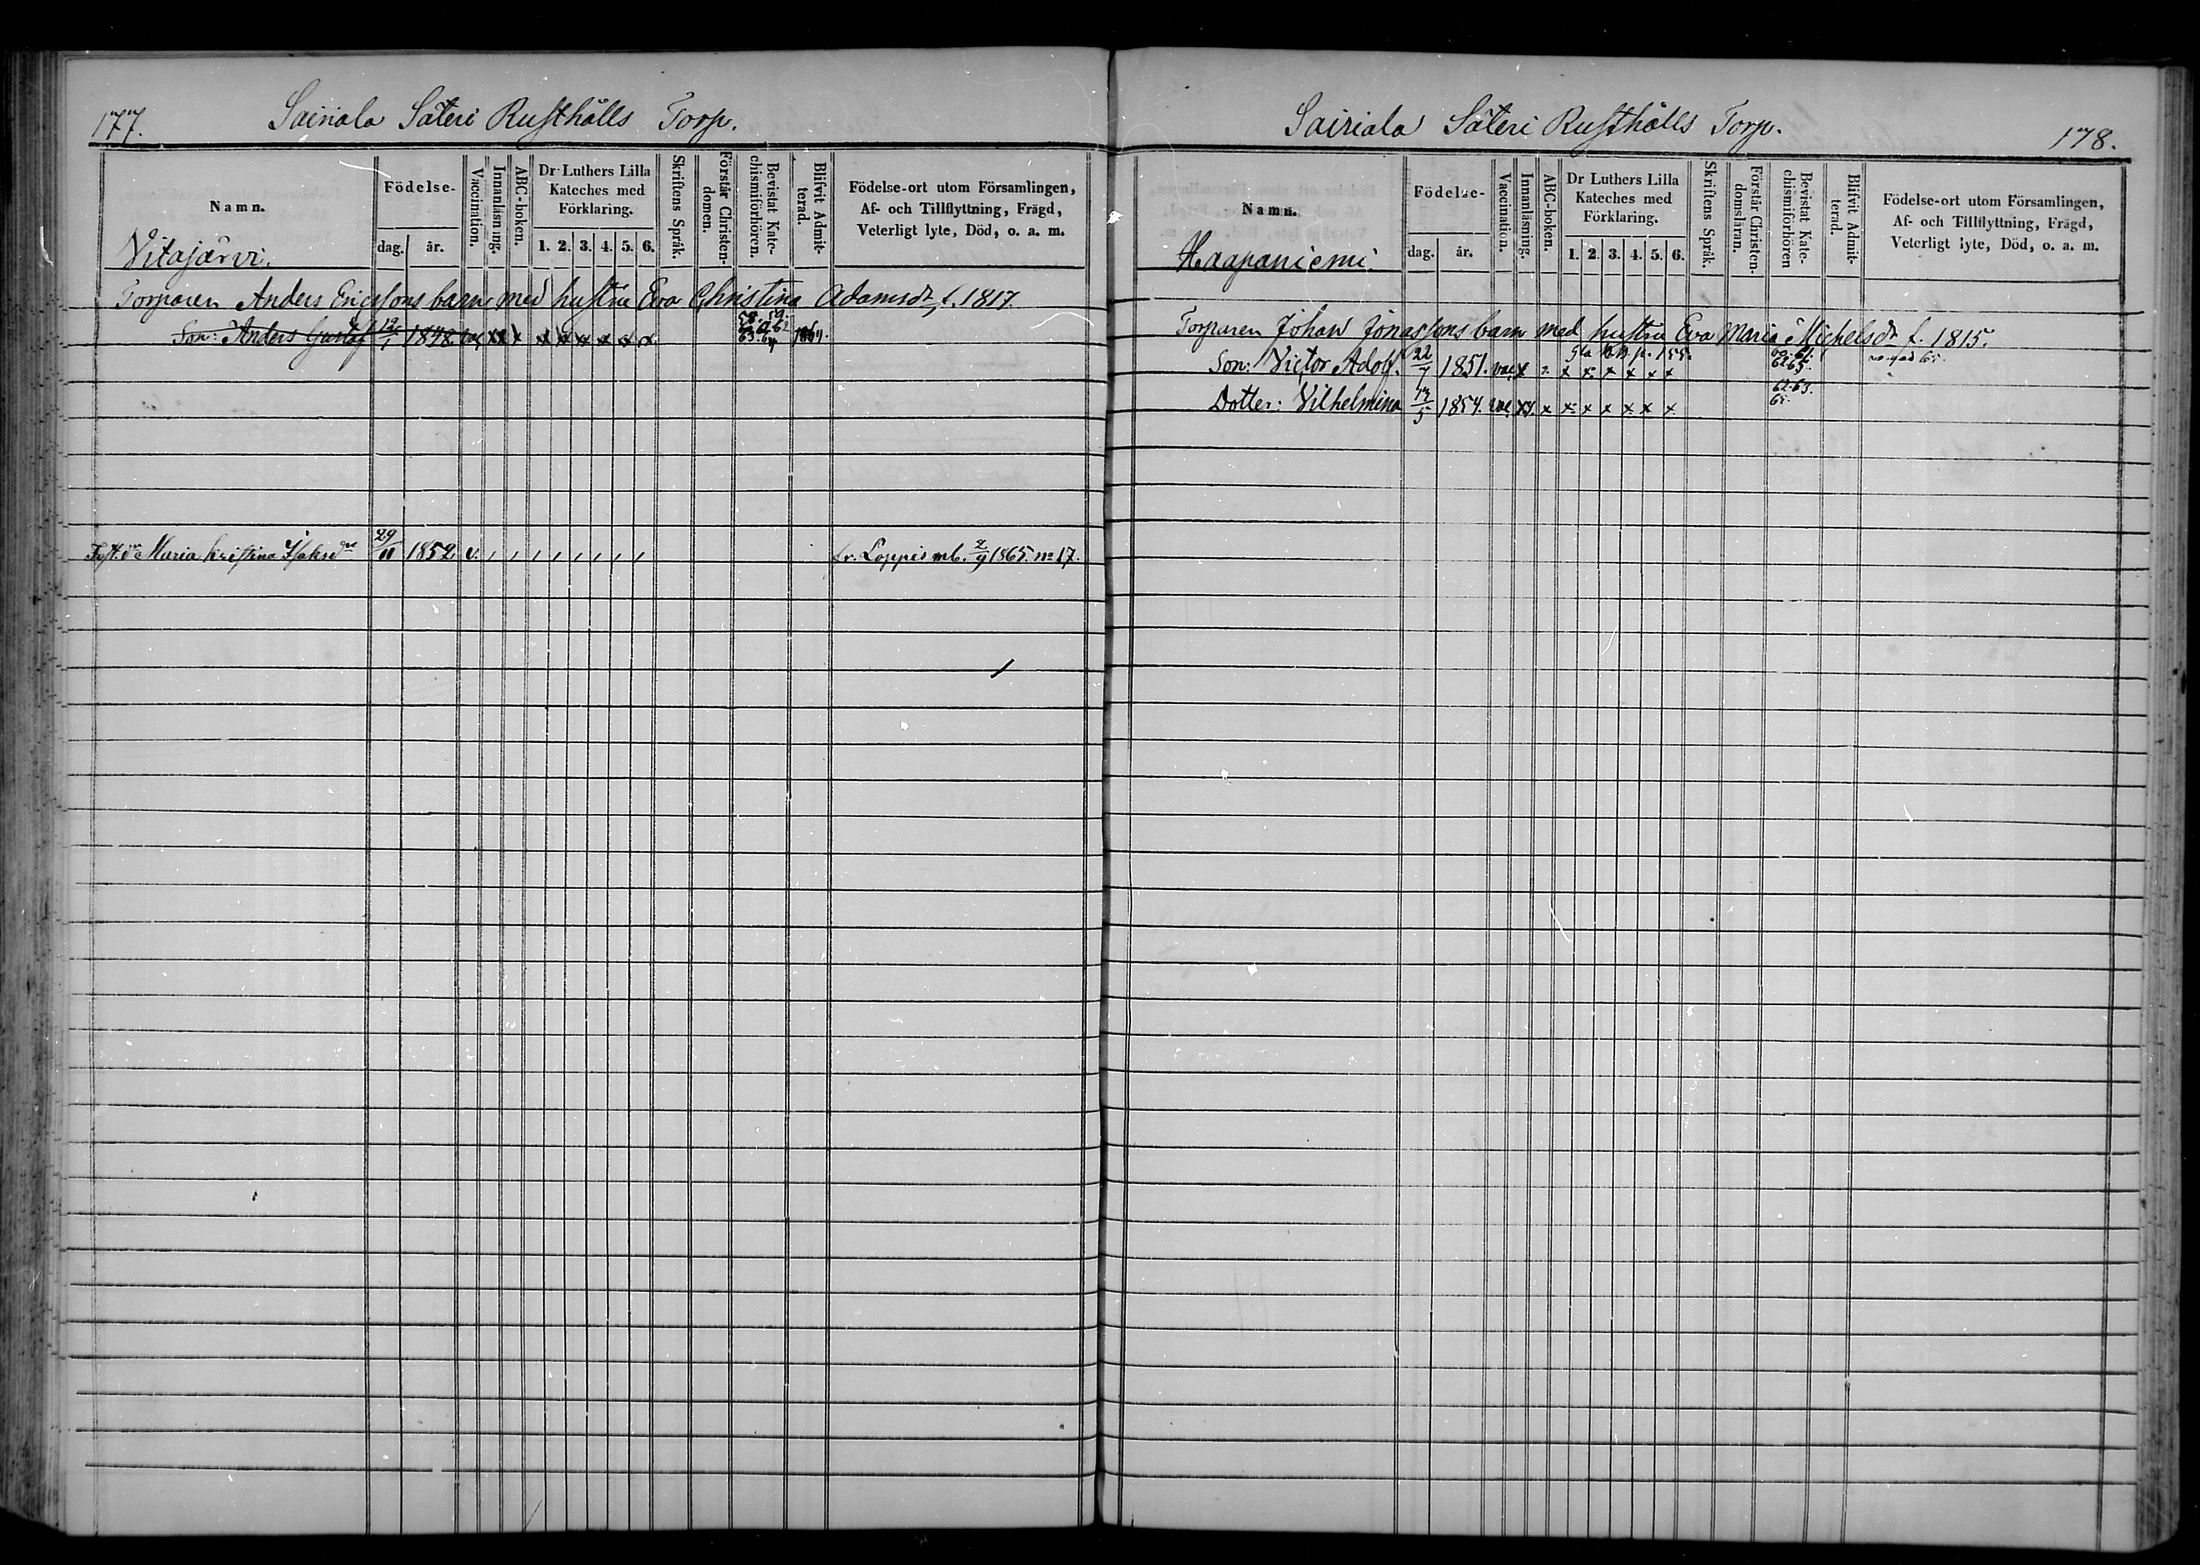 177. Sairiala Säteri Rusthålls Torp.
Namn.
Födelse-
dag. år.
Vaccination.
Innanläsning.
ABC-boken.
Dr Luthers Lilla Kateches med Förklaring.
1. 2. 3. 4. 5. 6.
Skriftens Språk.
Förstår Christendomen.
Bevistat Katechismiförhören.
Blifvit Admitterad.
Födelse-ort utom Församlingen,
Af- och Tillflyttning, Frägd,
Veterligt lyte, Död, o. a. m.
Vitajärvi.
Torparen Anders Ericssons barn med hustru Eva Christina Adamsdr f. 1817.
Son: Anders Gustaf 12/1 1848. vac x x x x x x x x x 58. 59. 63. 64
Maria Kristina Isaksdr 29/11 1852 v. fr. Loppis mb. 2/9 1865. no 17.
Sairiala Säteri Rusthålls Torp. 178.
Namn.
Födelse-
dag. år.
Vaccination.
Innanläsning.
ABC-boken.
Dr Luthers Lilla Kateches med Förklaring.
1. 2. 3. 4. 5. 6.
Skriftens Språk.
Förstår Christendomsläran.
Bevistat Katechismiförhören
Blifvit Admitterad.
Födelse-ort utom Församlingen,
Af- och Tillflyttning, Frägd,
Veterligt lyte, Död, o. a. m.
Haapaniemi.
Torparen Johan Jonassons barn med hustru Eva Maria Michelsdr f. 1815.
Son: Victor Adolf. 22/7 1851. vac x x x x x x x 62. 65.
Dotter: Vilhelmina 17/5 1854. vac. xx. x x x x x x x 62. 63. 65.